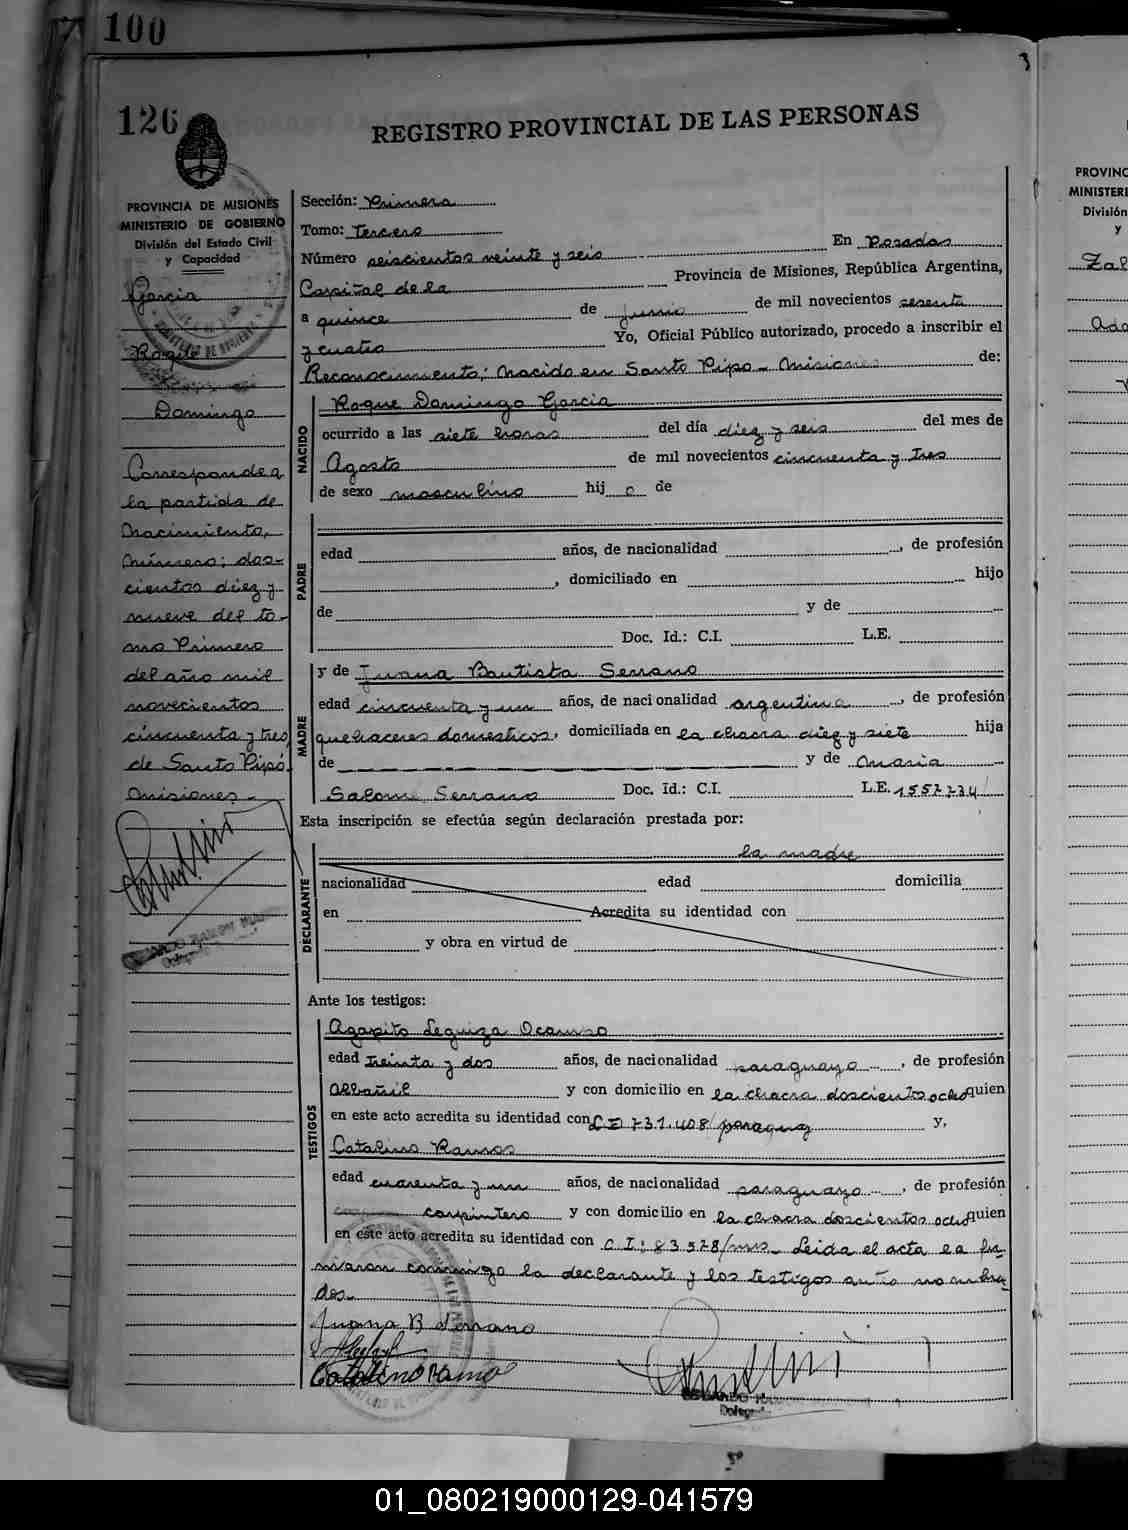 100
3
126
REGISTRO PROVINCIAL DE LAS PERSONAS
PROVINCIA DE MISIONES
MINISTERIO DE GOBIERNO
División del Estado Civil
y Capacidad
Garcia
Roque
Domingo
Corresponde a
la partida de
nacimiento,
número; dos-
cientos diez y
nueve del to-
mo Primero
del año mil
novecientos
cincuenta y tres
de Santo Pipó.
Misiones.-
Sección: Primera
Tomo: Tercero
Número seiscientos veinte y seis En Posadas
Capital de la Provincia de Misiones, República Argentina,
a quince de junio de mil novecientos sesenta
y cuatro Yo, Oficial Público autorizado, procedo a inscribir el
Reconocimiento; Nacido en Santo Pipo - Misiones de:
NACIDO
Roque Domingo Garcia
ocurrido a las siete horas del día diez y seis del mes de
Agosto de mil novecientos cincuenta y tres
de sexo masculino hij o de
PADRE
edad años, de nacionalidad , de profesión
, domiciliado en hijo
de y de
Doc. Id.: C.I. L.E.
MADRE
y de Juana Bautista Serrano
edad cincuenta y un años, de nacionalidad argentina , de profesión
quehaceres domesticos, domiciliada en la chacra diez y siete hija
de y de Maria
Salome Serrano Doc. Id.: C.I. L.E. 1557734
Esta inscripción se efectúa según declaración prestada por:
DECLARANTE
la madre
nacionalidad edad domicilia
en Acredita su identidad con
y obra en virtud de
Ante los testigos:
TESTIGOS
Agapito Leguiza Ocampo
edad treinta y dos años, de nacionalidad paraguayo , de profesión
Albañil y con domicilio en la chacra doscientos ocho quien
en este acto acredita su identidad con C I 731.408/paraguay y,
Catalino Ramos
edad cuarenta y un años, de nacionalidad paraguayo , de profesión
carpintero y con domicilio en la chacra doscientos ocho quien
en este acto acredita su identidad con C.I: 83578/mns- Leida el acta la fir-
maron conmigo la declarante y los testigos antes nombra-
dos.-
Juana B Serrano
Catalino Ramo
Delegado
PROVINC
MINISTERI
División
y
Zal
01_080219000129-041579